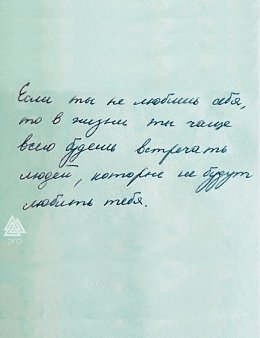 Если ты не любишь себя,
то в жизни ты чаще
всего будешь встречать
людей, которые не будут
любить тебя.
ЭГО